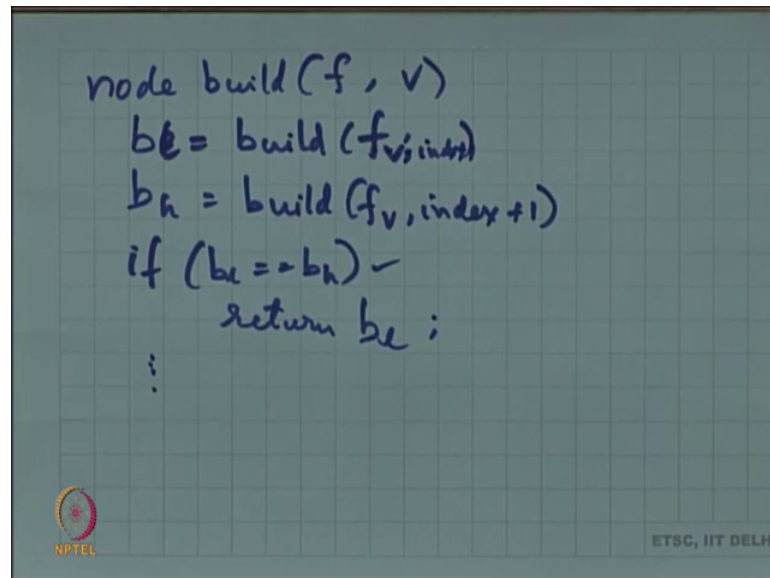 node build(f, v)
bl = build(fv', index)
bh = build(fv, index +1)
if (bl == bh) ~
return bl ;
⋮
NPTEL
ETSC, IIT DELH